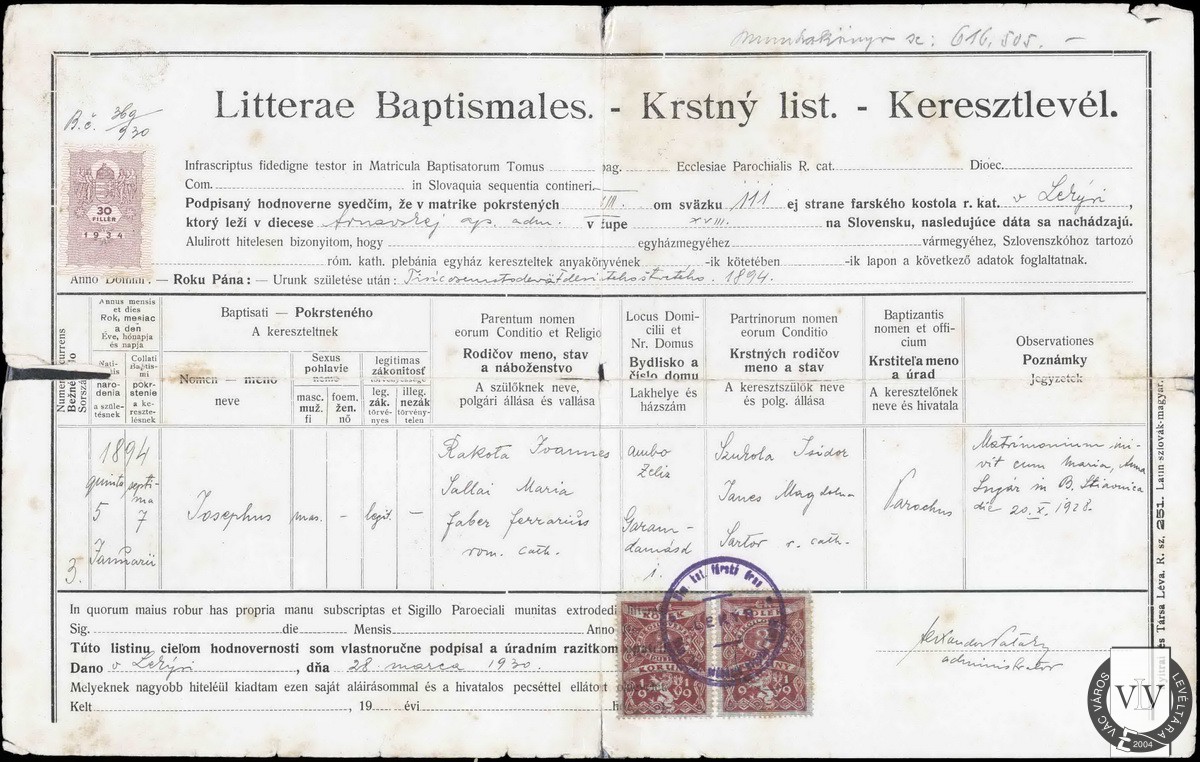 Munkakönyv sz: 616.505. —
B.č. 369/930
Litterae Baptismales. - Krstný list. - Keresztlevél.
30
FILLÉR
1934
Infrascriptus fidedigne testor in Matricula Baptisatorum Tomus pag. Ecclesiae Parochialis R. cat. Dioec.
Com. in Slovaquia sequentia contineri.
Podpisaný hodnoverne svedčím, že v matrike pokrstených VIII. om sväzku 111 ej strane farského kostola r. kat. v ,
ktorý leží v diecese adm. v župe XVIII. na Slovensku, nasledujúce dáta sa nachádzajú.
Alulirott hitelesen bizonyitom, hogy egyházmegyéhez vármegyéhez, Szlovenszkóhoz tartozó
róm. kath. plebánia egyház kereszteltek anyakönyvének -ik kötetében -ik lapon a következő adatok foglaltatnak.
Anno Domini: — Roku Pána: — Urunk születése után: 1894.
Numerus currens
Bežné číslo
Sorszám
Annus mensis
et dies
Rok, mesiac
a den
Éve, hónapja
és napja
Nati-
vitatis
naro-
denia
a szüle-
tésnek
Collati
Baptis-
mi
pokr-
stenie
a ke-
reszte-
lésnek
Baptisati — Pokrsteného
A kereszteltnek
Nomen — meno
neve
Sexus
pohlavie
neme
masc.
muž.
fi
foem.
žen.
nő
legitimas
zákonitosť
törvényessége
leg.
zák.
törvé-
nyes
illeg.
nezák
törvény-
telen
Parentum nomen
eorum Conditio et Religio
Rodičov meno, stav
a náboženstvo
A szülőknek neve,
polgári állása és vallása
Locus Domi-
cilii et
Nr. Domus
Bydlisko a
číslo domu
Lakhelye és
házszám
Partrinorum nomen
eorum Conditio
Krstných rodičov
meno a stav
A keresztszülók neve
és polg. állása
Baptizantis
nomen et offi-
cium
Krstiteľa meno
a úrad
A keresztelőnek
neve és hivatala
Observationes
Poznámky
Jegyzetek
3.
1894
quinta
5
Januarii
septi-
ma
7
Josephus
mas.
–
legit.
–
Rakota Joannes
Sallai Maria
faber ferrarius
rom. cath.
ambo
Zeliz
Garam-
damásd
1.
Szukola Isidor
Jancs Magdolna
Sartor r. cath.
Parochus
Matrimonium ini-
vit cum Maria, Anna
in B. Stiavnica
die 20. X. 1928.
In quorum maius robur has propria manu subscriptas et Sigillo Paroeciali munitas extrodedi
Sig. die Mensis Anno
Túto listinu cieľom hodnovernosti som vlastnoručne podpísal a úradním razítkom
Dano v , dňa 28. marca 1930.
Melyeknek nagyobb hiteléül kiadtam ezen saját aláirásommal és a hivatalos pecséttel ellátott
Kelt , 19 évi
Alexander
administrator
es Társa Léva. R. sz. 251. Laun-szlovák-magyar.
VÁC VÁROS LEVÉLTÁRA
VLV
2004